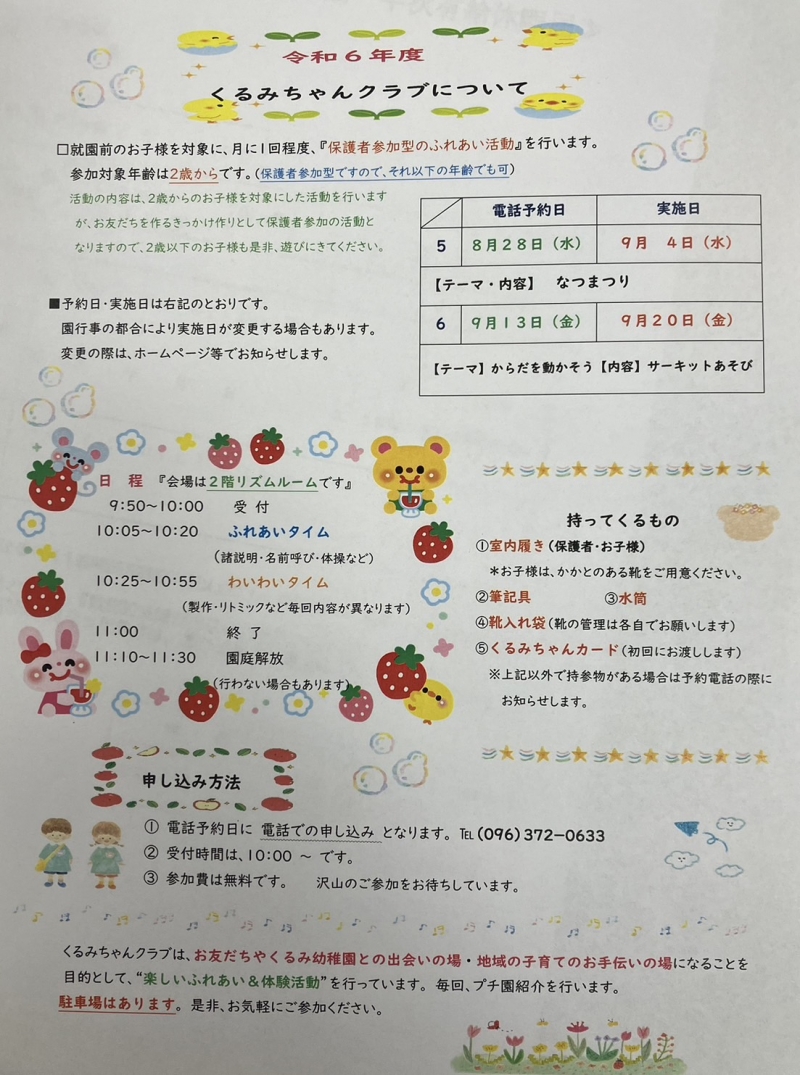 令和６年度
くるみちゃんクラブについて
□就園前のお子様を対象に、月に１回程度、『保護者参加型のふれあい活動』を行います。
参加対象年齢は２歳からです。（保護者参加型ですので、それ以下の年齢でも可）
活動の内容は、２歳からのお子様を対象にした活動を行います
が、お友だちを作るきっかけ作りとして保護者参加の活動と
なりますので、２歳以下のお子様も是非、遊びにきてください。
■予約日・実施日は右記のとおりです。
園行事の都合により実施日が変更する場合もあります。
変更の際は、ホームページ等でお知らせします。
電話予約日 実施日
5 ８月２８日（水） ９月　４日（水）
【テーマ・内容】　なつまつり
6 ９月１３日（金） ９月２０日（金）
【テーマ】からだを動かそう【内容】サーキットあそび
日　程　『会場は２階リズムルームです』
9:50～10:00　受 付
10:05～10:20　ふれあいタイム
（諸説明・名前呼び・体操など）
10:25～10:55　わいわいタイム
（製作・リトミックなど毎回内容が異なります）
11:00　終 了
11:10～11:30　園庭解放
（行わない場合もあります）
持ってくるもの
①室内履き（保護者・お子様）
＊お子様は、かかとのある靴をご用意ください。
②筆記具　③水筒
④靴入れ袋（靴の管理は各自でお願いします）
⑤くるみちゃんカード（初回にお渡しします）
※上記以外で持参物がある場合は予約電話の際に
お知らせします。
申し込み方法
① 電話予約日に 電話での申し込み となります。℡（096）372－0633
② 受付時間は、10：00 ～ です。
③ 参加費は無料です。　沢山のご参加をお待ちしています。
くるみちゃんクラブは、お友だちやくるみ幼稚園との出会いの場・地域の子育てのお手伝いの場になることを
目的として、“楽しいふれあい＆体験活動”を行っています。毎回、プチ園紹介を行います。
駐車場はあります。是非、お気軽にご参加ください。